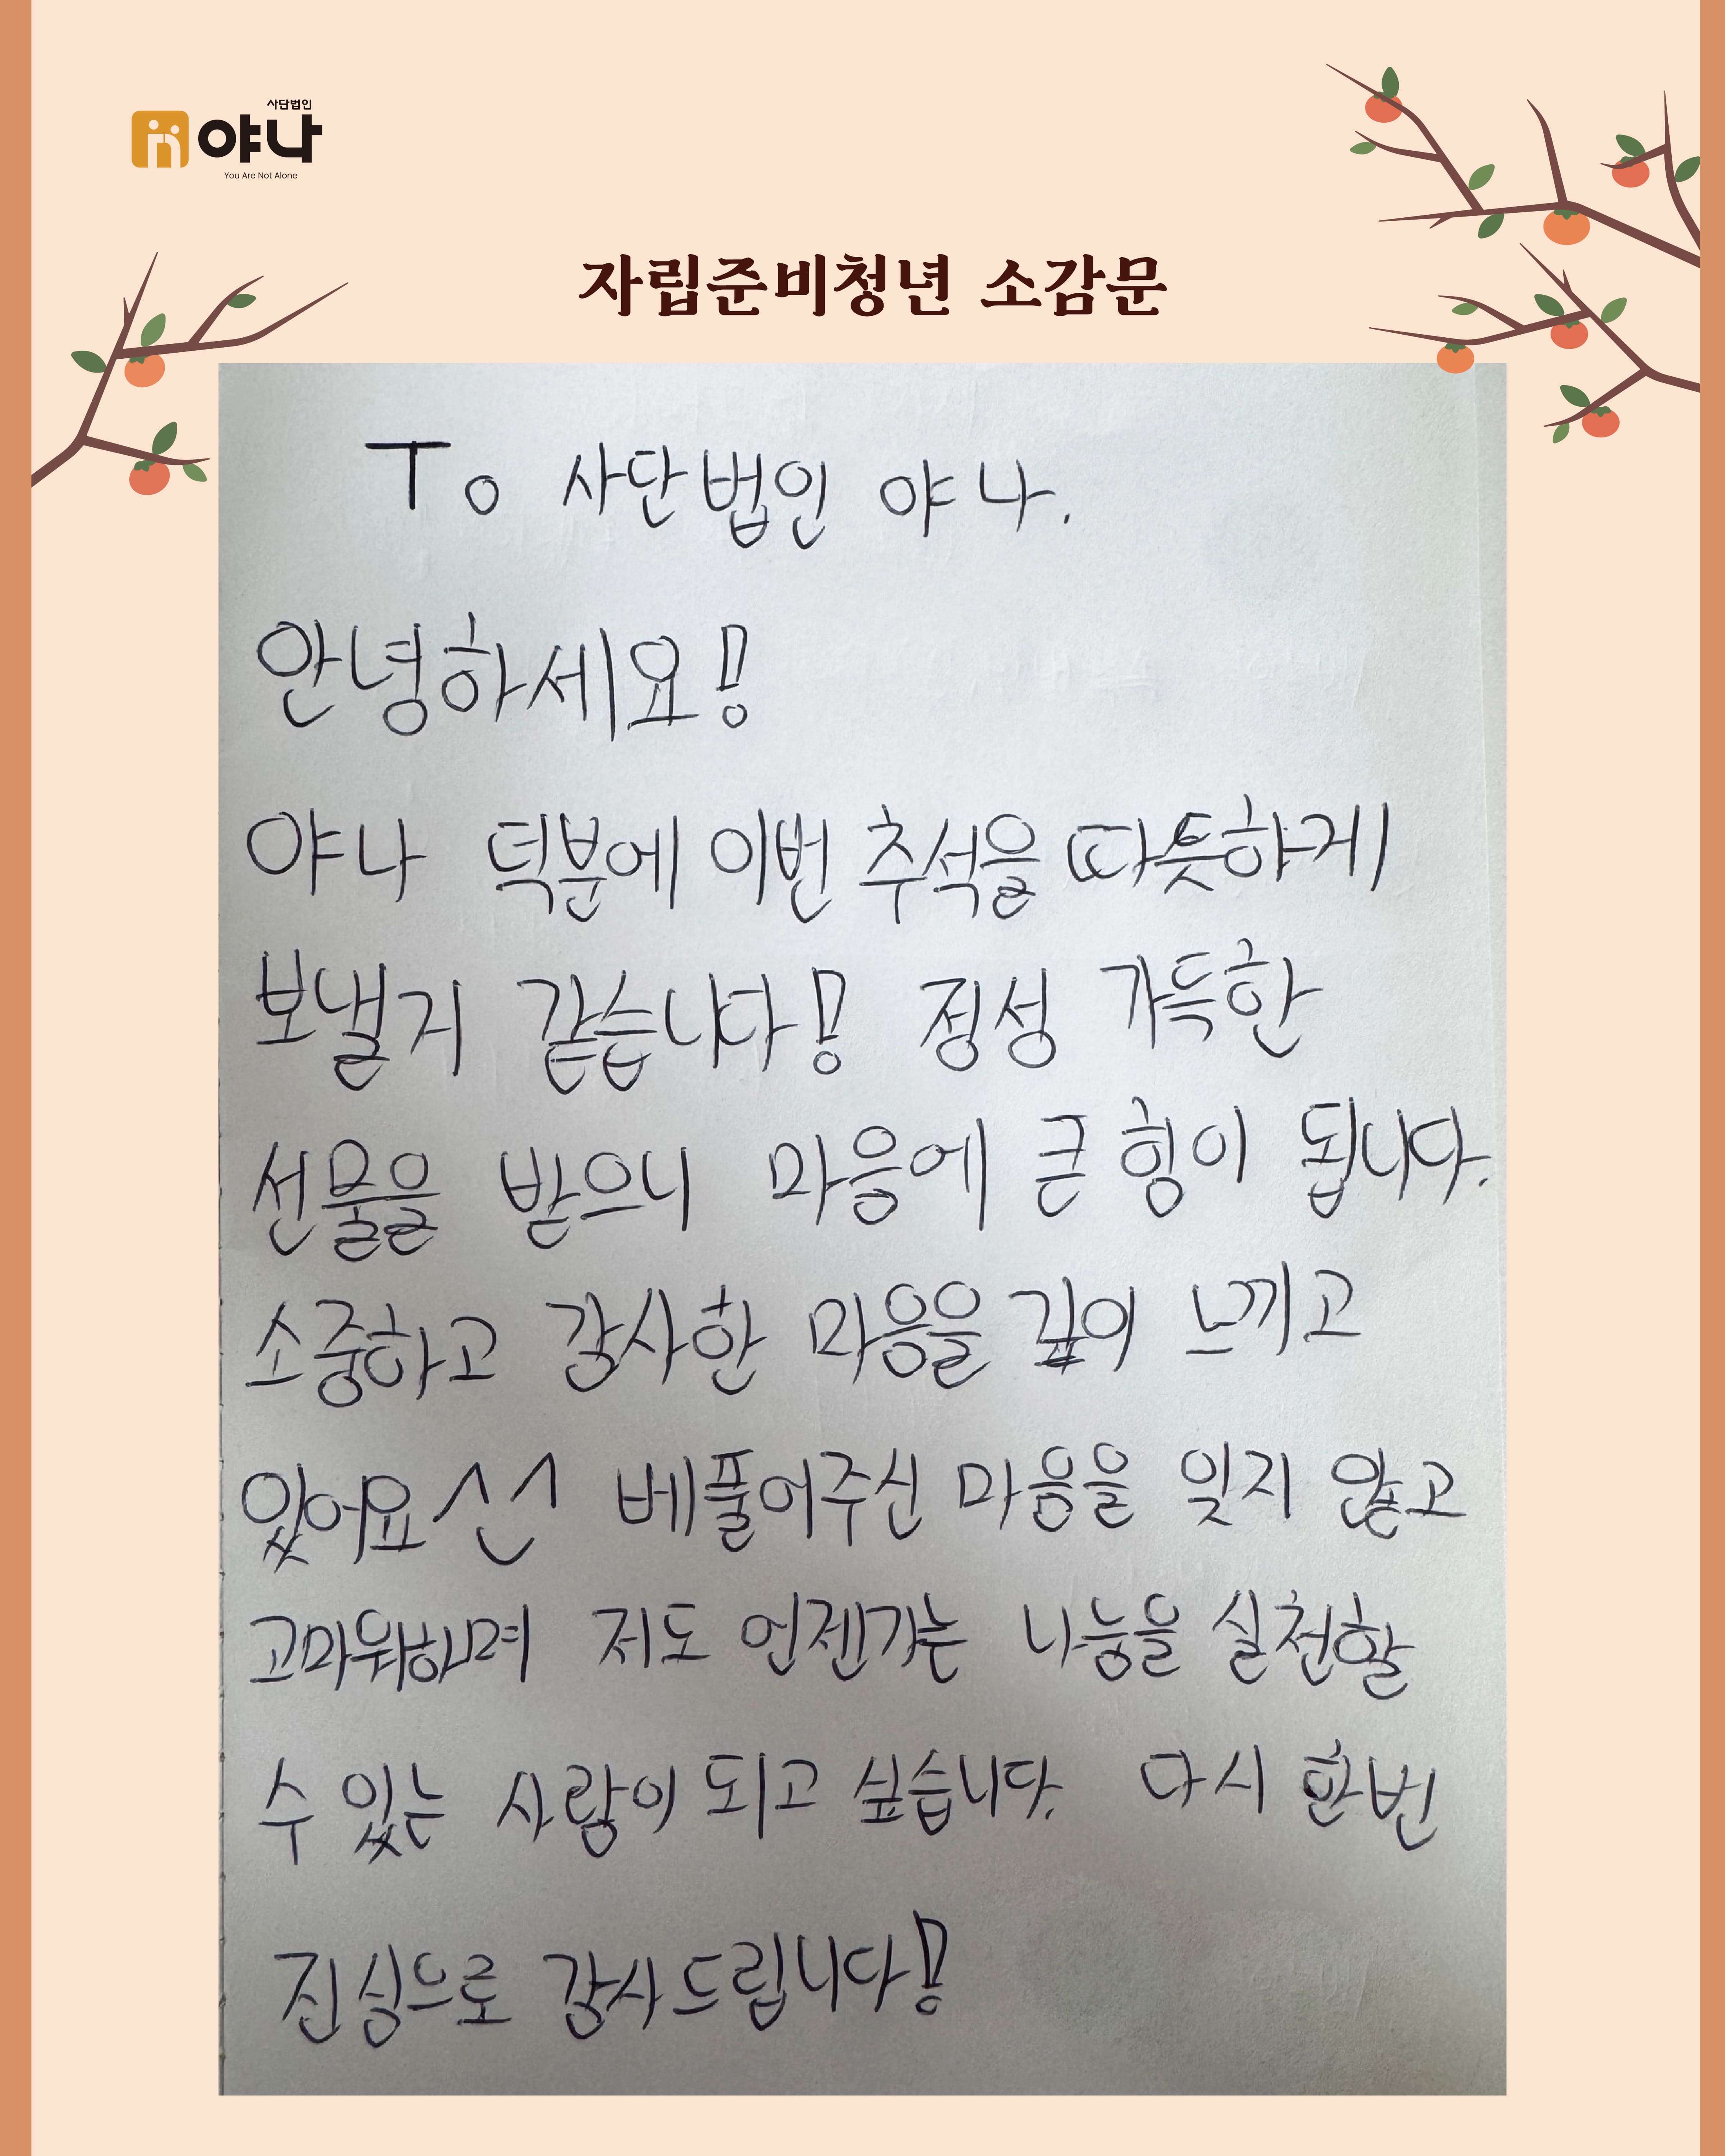 사단법인
야나
You Are Not Alone
자립준비청년 소감문
To 사단법인 야나.
안녕하세요!
야나 덕분에 이번 추석을 따듯하게
보낼거 같습니다! 정성 가득한
선물을 받으니 마음에 큰 힘이 됩니다.
소중하고 감사한 마음을 깊이 느끼고
있어요^^ 베풀어주신 마음을 잊지 않고
고마워하며 저도 언젠가는 나눔을 실천할
수 있는 사람이 되고 싶습니다. 다시 한번
진심으로 감사드립니다!